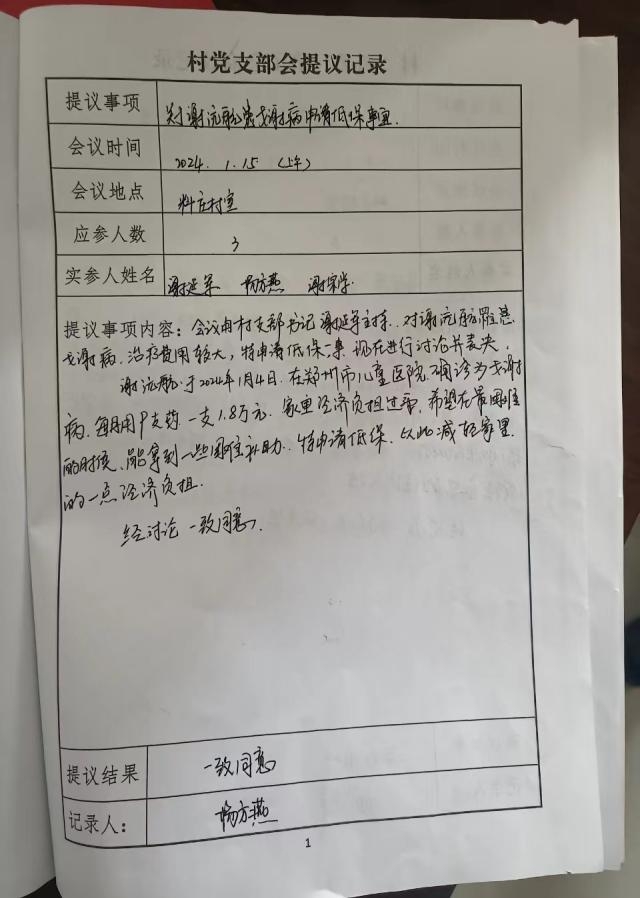 村党支部会提议记录
提议事项 对谢沅航患戈谢病申请低保事宜.
会议时间 2024.1.15 (上午)
会议地点 料庄村室
应参人数 3
实参人姓名 谢延军 杨方燕 谢荣学
提议事项内容：会议由村支部书记谢延军主持.对谢沅航罹患
戈谢病.治疗费用较大,特申请低保一事.现在进行讨论并表决.
谢沅航于2024年1月4日.在郑州市儿童医院.确诊为戈谢
病.每月用P支药.一支1.8万元.家里经济负担过重.希望在最困难
的时候.能拿到一些困难补助.特申请低保.以此减轻家里
的一点经济负担.
经讨论一致同意.
提议结果 一致同意
记录人： 杨方燕
1